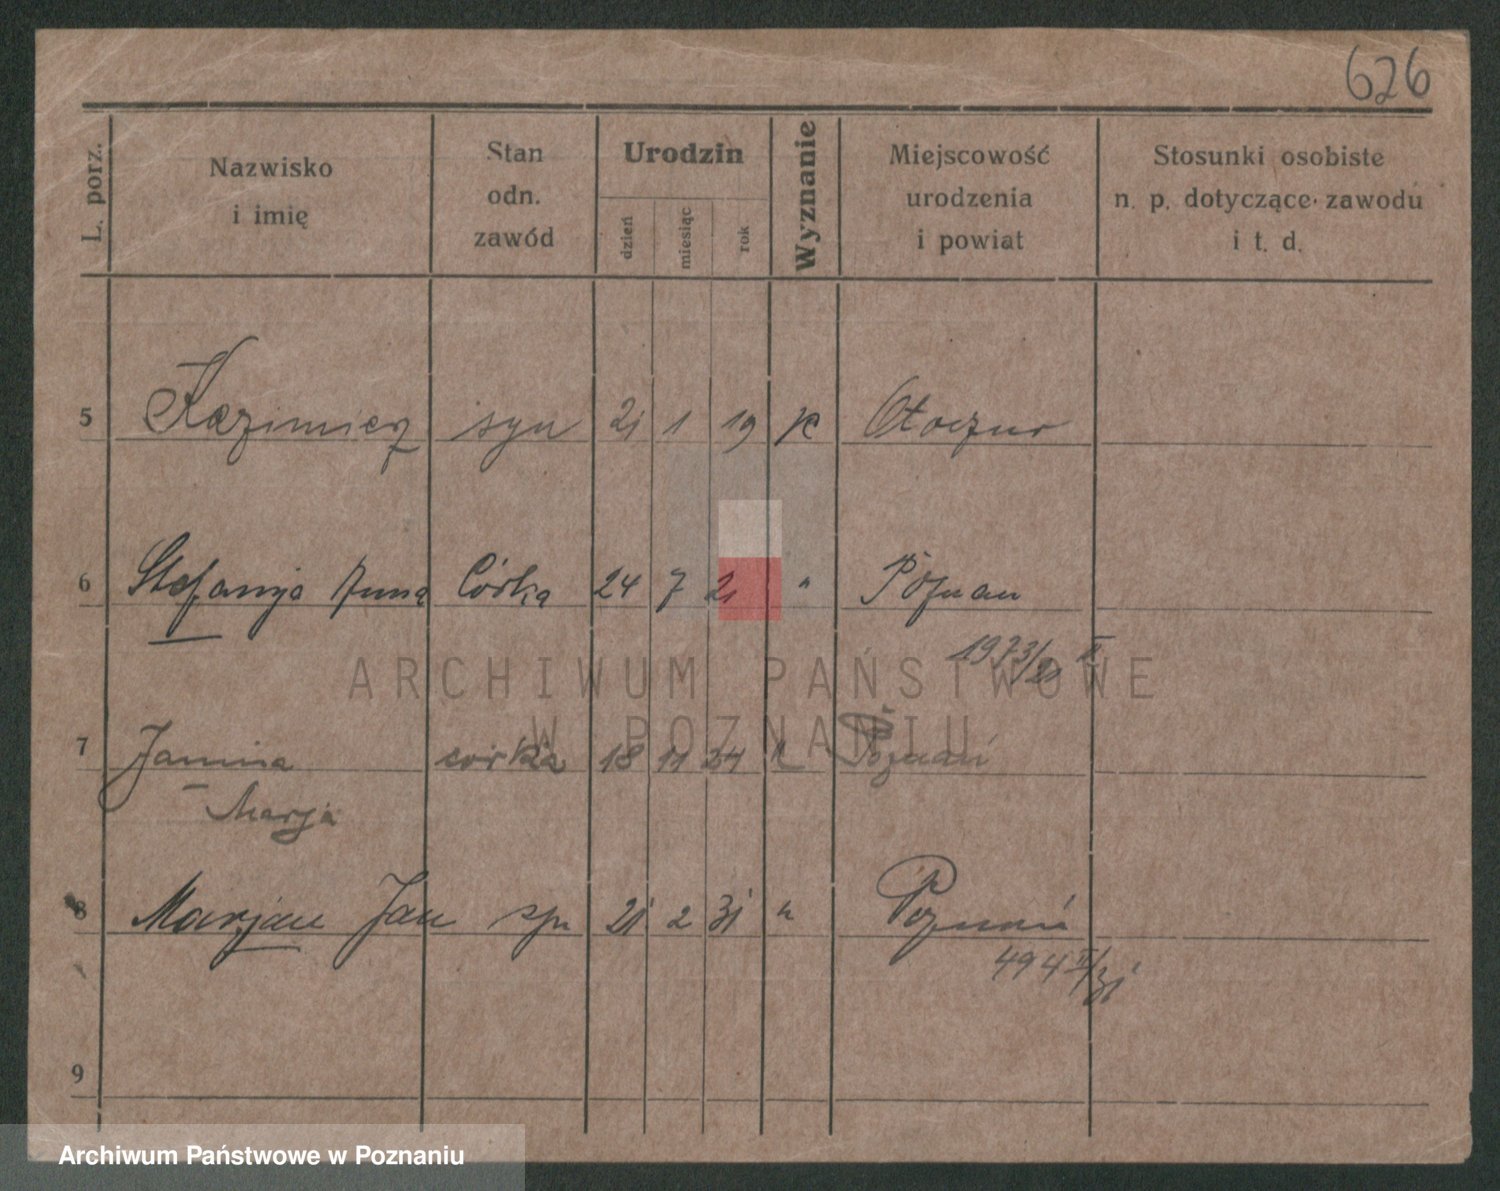 626
L. porz. Nazwisko i imię Stan odn. zawód Urodzin dzień miesiąc rok Wyznanie Miejscowość urodzenia i powiat Stosunki osobiste n. p. dotyczące zawodu i t. d.
5 Kazimierz syn 21 1 19 K
6 Stefanja Anna Córka 24 7 21 " Poznań
1973/21 II
ARCHIWUM PAŃSTWOWE
W POZNANIU
7 Janina córka 18 11 24 Poznań
Marja
8 Marjan Jan syn 21 2 31 " Poznań
494 II/31
9
Archiwum Państwowe w Poznaniu